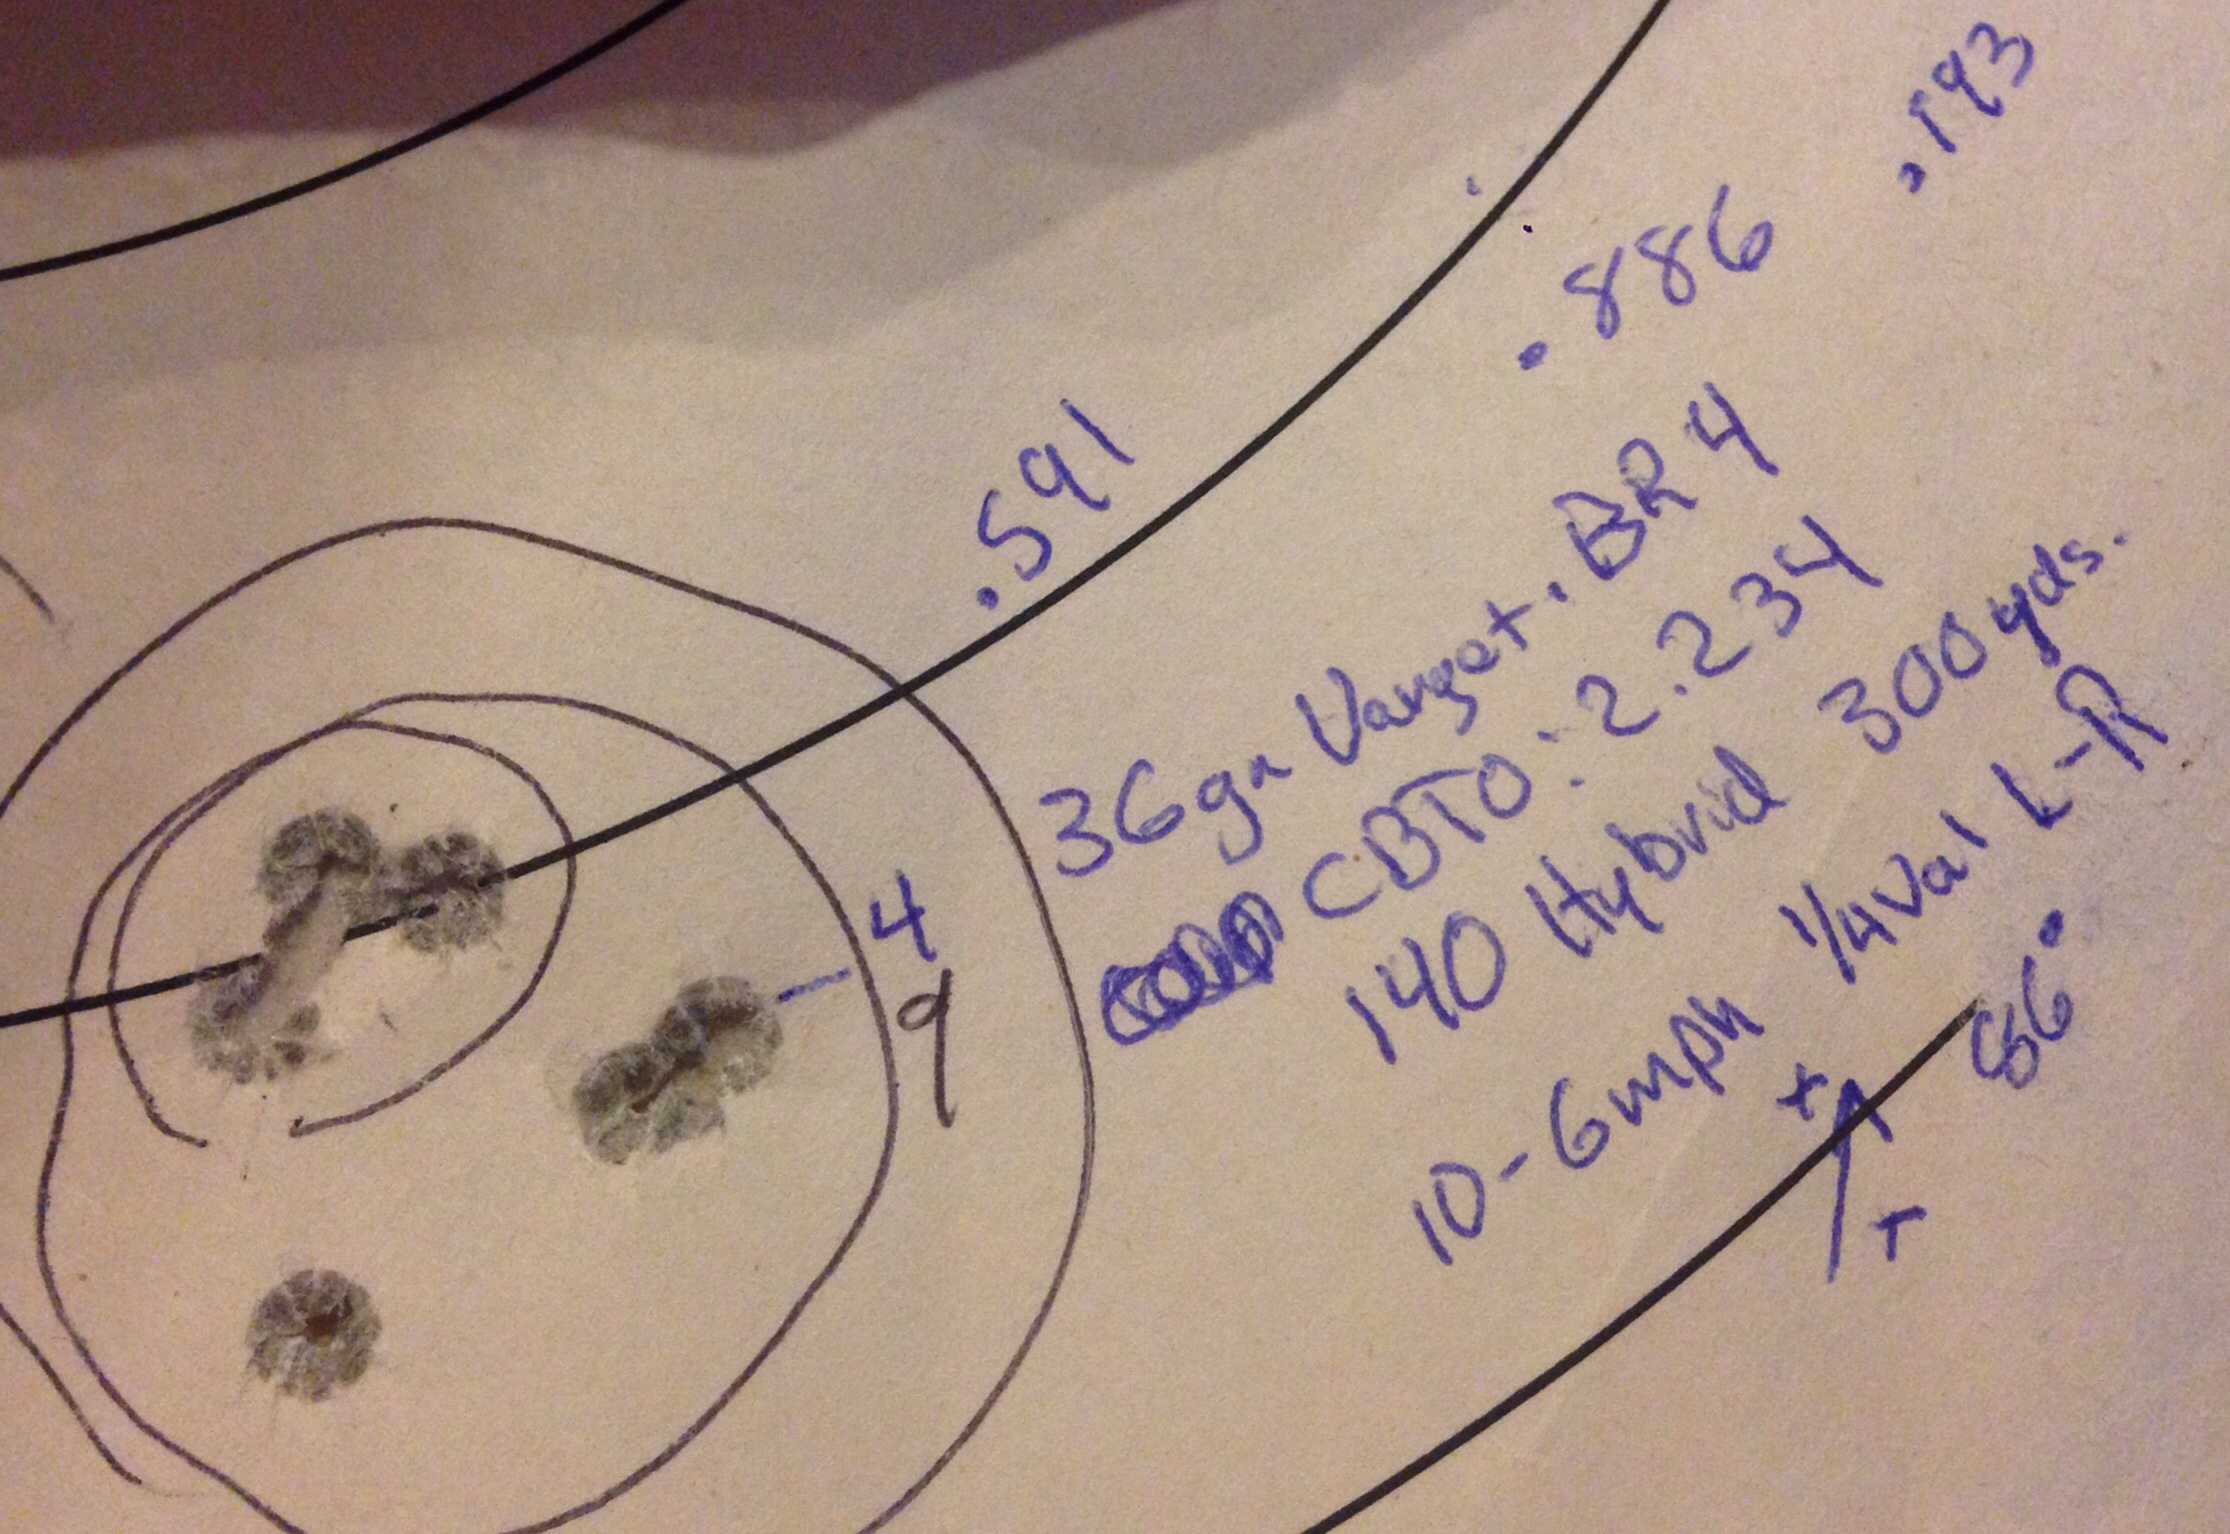 .193
.886
.591
36gn Varget. BR4
CBTO: 2.234
140 Hybrid 300yds.
10-6mph 1/4Val L-R
86°
4
9